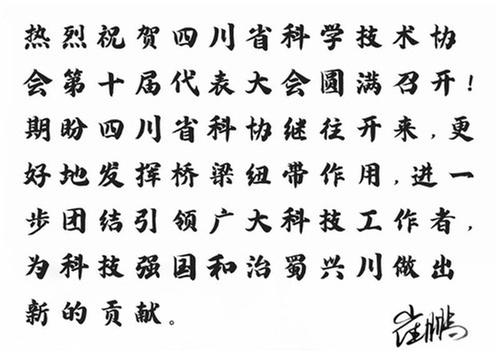 热烈祝贺四川省科学技术协
会第十届代表大会圆满召开！
期盼四川省科协继往开来，更
好地发挥桥梁纽带作用，进一
步团结引领广大科技工作者，
为科技强国和治蜀兴川做出
新的贡献。
崔鹏